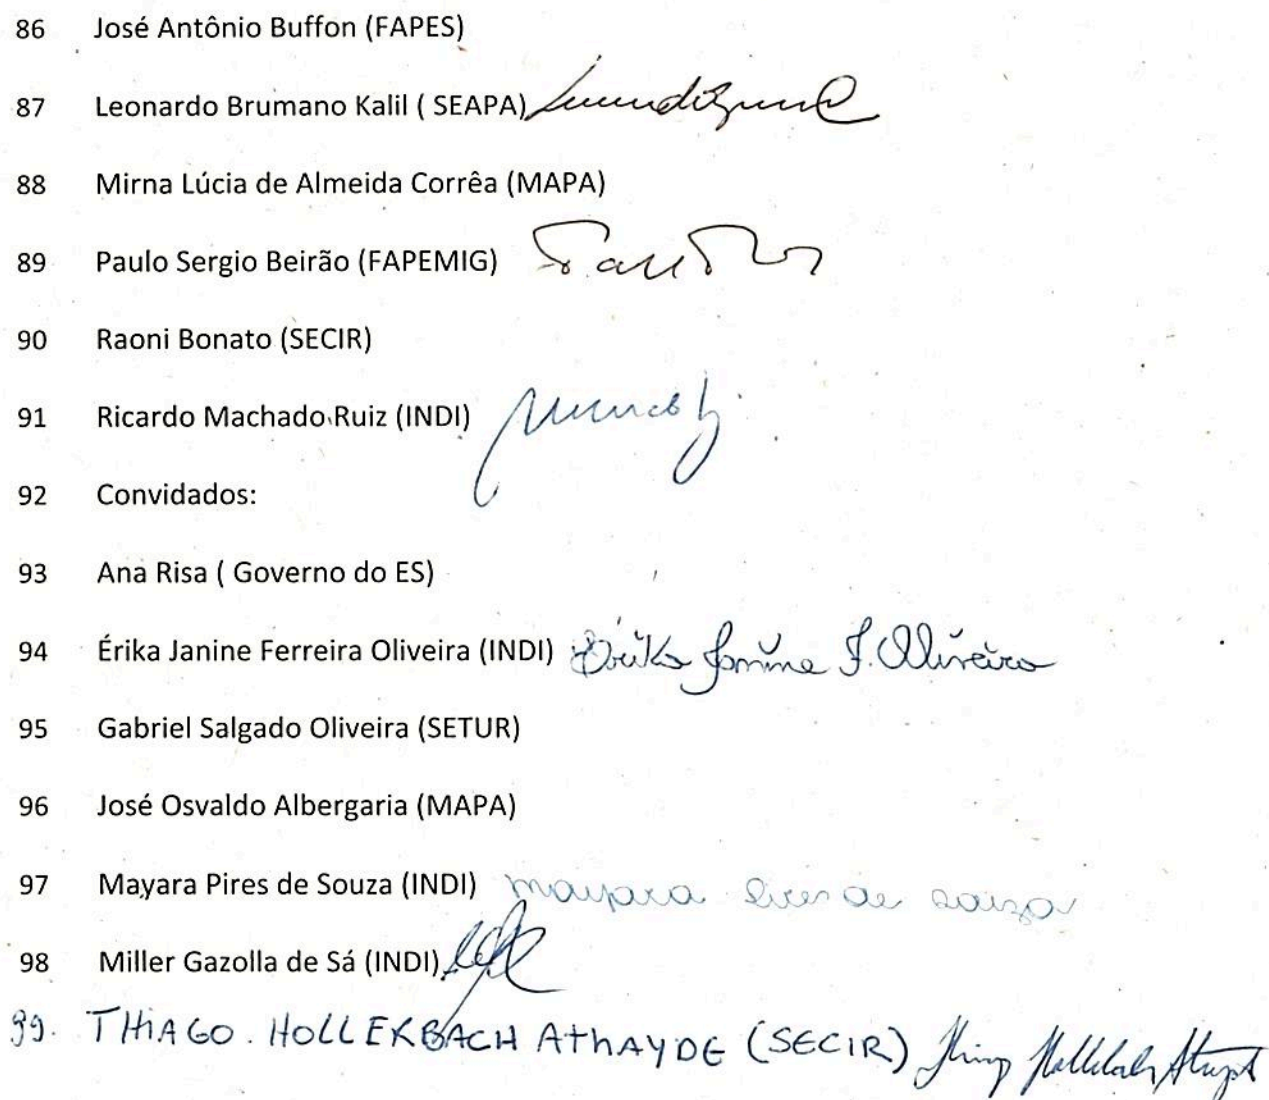 86 José Antônio Buffon (FAPES)
87 Leonardo Brumano Kalil ( SEAPA)
88 Mirna Lúcia de Almeida Corrêa (MAPA)
89 Paulo Sergio Beirão (FAPEMIG)
90 Raoni Bonato (SECIR)
91 Ricardo Machado Ruiz (INDI)
92 Convidados:
93 Ana Risa ( Governo do ES)
94 Érika Janine Ferreira Oliveira (INDI) Érika Janine F. Oliveira
95 Gabriel Salgado Oliveira (SETUR)
96 José Osvaldo Albergaria (MAPA)
97 Mayara Pires de Souza (INDI) mayara Pires de souza
98 Miller Gazolla de Sá (INDI)
99. THIAGO. HOLLERBACH AThAYDE (SECIR)